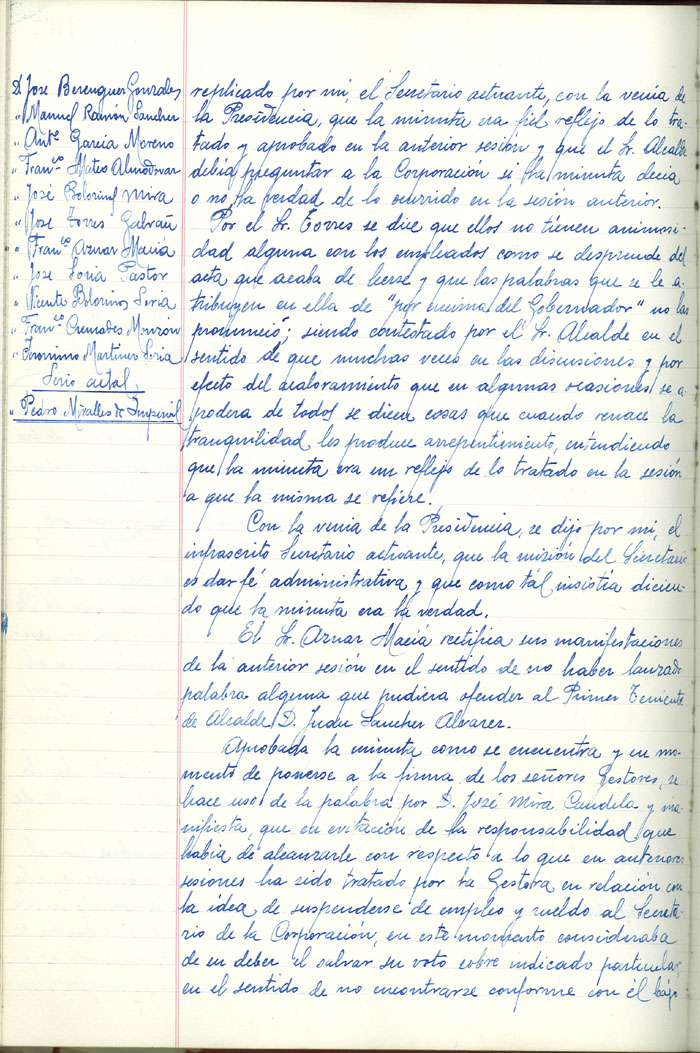 D. Jose Berenguer Gonzales
" Manuel Ramón Sanchez
" Antº Garcia Moreno
" Franco Mateo Almodovar
" José Bolorinos Mira
" Jose Torres Gabrañ
" Franco Aznar Maciá
" Jose Soria Pastor
" Vicente Bolorinos Soria
" Franco Cremades Monzón
" Jeronimo Martinez Soria
Srio actal,
" Pedro Miralles de Imperial
replicado por mi, el Secretario actuante, con la venia de
la Presidencia, que la minuta era fiel reflejo de lo tra-
tado y aprobado en la anterior sesión y que el Sr. Alcalde
debia preguntar a la Corporación si la minuta decia
o no, la verdad de lo ocurrido en la sesión anterior.
Por el Sr. Torres se dice que ellos no tienen animosi-
dad alguna con los empleados como se desprende del
acta que acaba de leerse y que las palabras que se le a-
tribuyen en ella de "por encima del Gobernador" no las
pronunció; siendo contestado por el Sr. Alcalde en el
sentido de que muchas veces en las discusiones y por
efecto del acaloramiento que en algunas ocasiones se a-
podera de todos se dicen cosas que cuando renace la
tranquilidad les produce arrepentimiento, entendiendo
que la minuta era un reflejo de lo tratado en la sesión
a que la misma se refiere.
Con la venia de la Presidencia, se dijo por mi, el
infrascrito Secretario actuante, que la misión del Secretario
es dar fé administrativa y que como tál insistia dicien-
do que la minuta era la verdad.
El Sr. Aznar Maciá rectifica sus manifestaciones
de la anterior sesión en el sentido de no haber lanzado
palabra alguna que pudiera ofender al Primer Teniente
de Alcalde D. Juan Sanchez Alvarez.
Aprobada la minuta como se encuentra y en mo-
mento de ponerse a la firma de los señores Gestores, se
hace uso de la palabra por D. José Mira Candela y ma-
nifiesta, que en evitación de la responsabilidad que
habia de alcanzarle con respecto a lo que en anteriores
sesiones ha sido tratado por la Gestora en relación con
la idea de suspenderse de empleo y sueldo al Secreta-
rio de la Corporación, en este momento consideraba
de su deber el salvar su voto sobre indicado particular,
en el sentido de no encontrarse conforme con él bajo